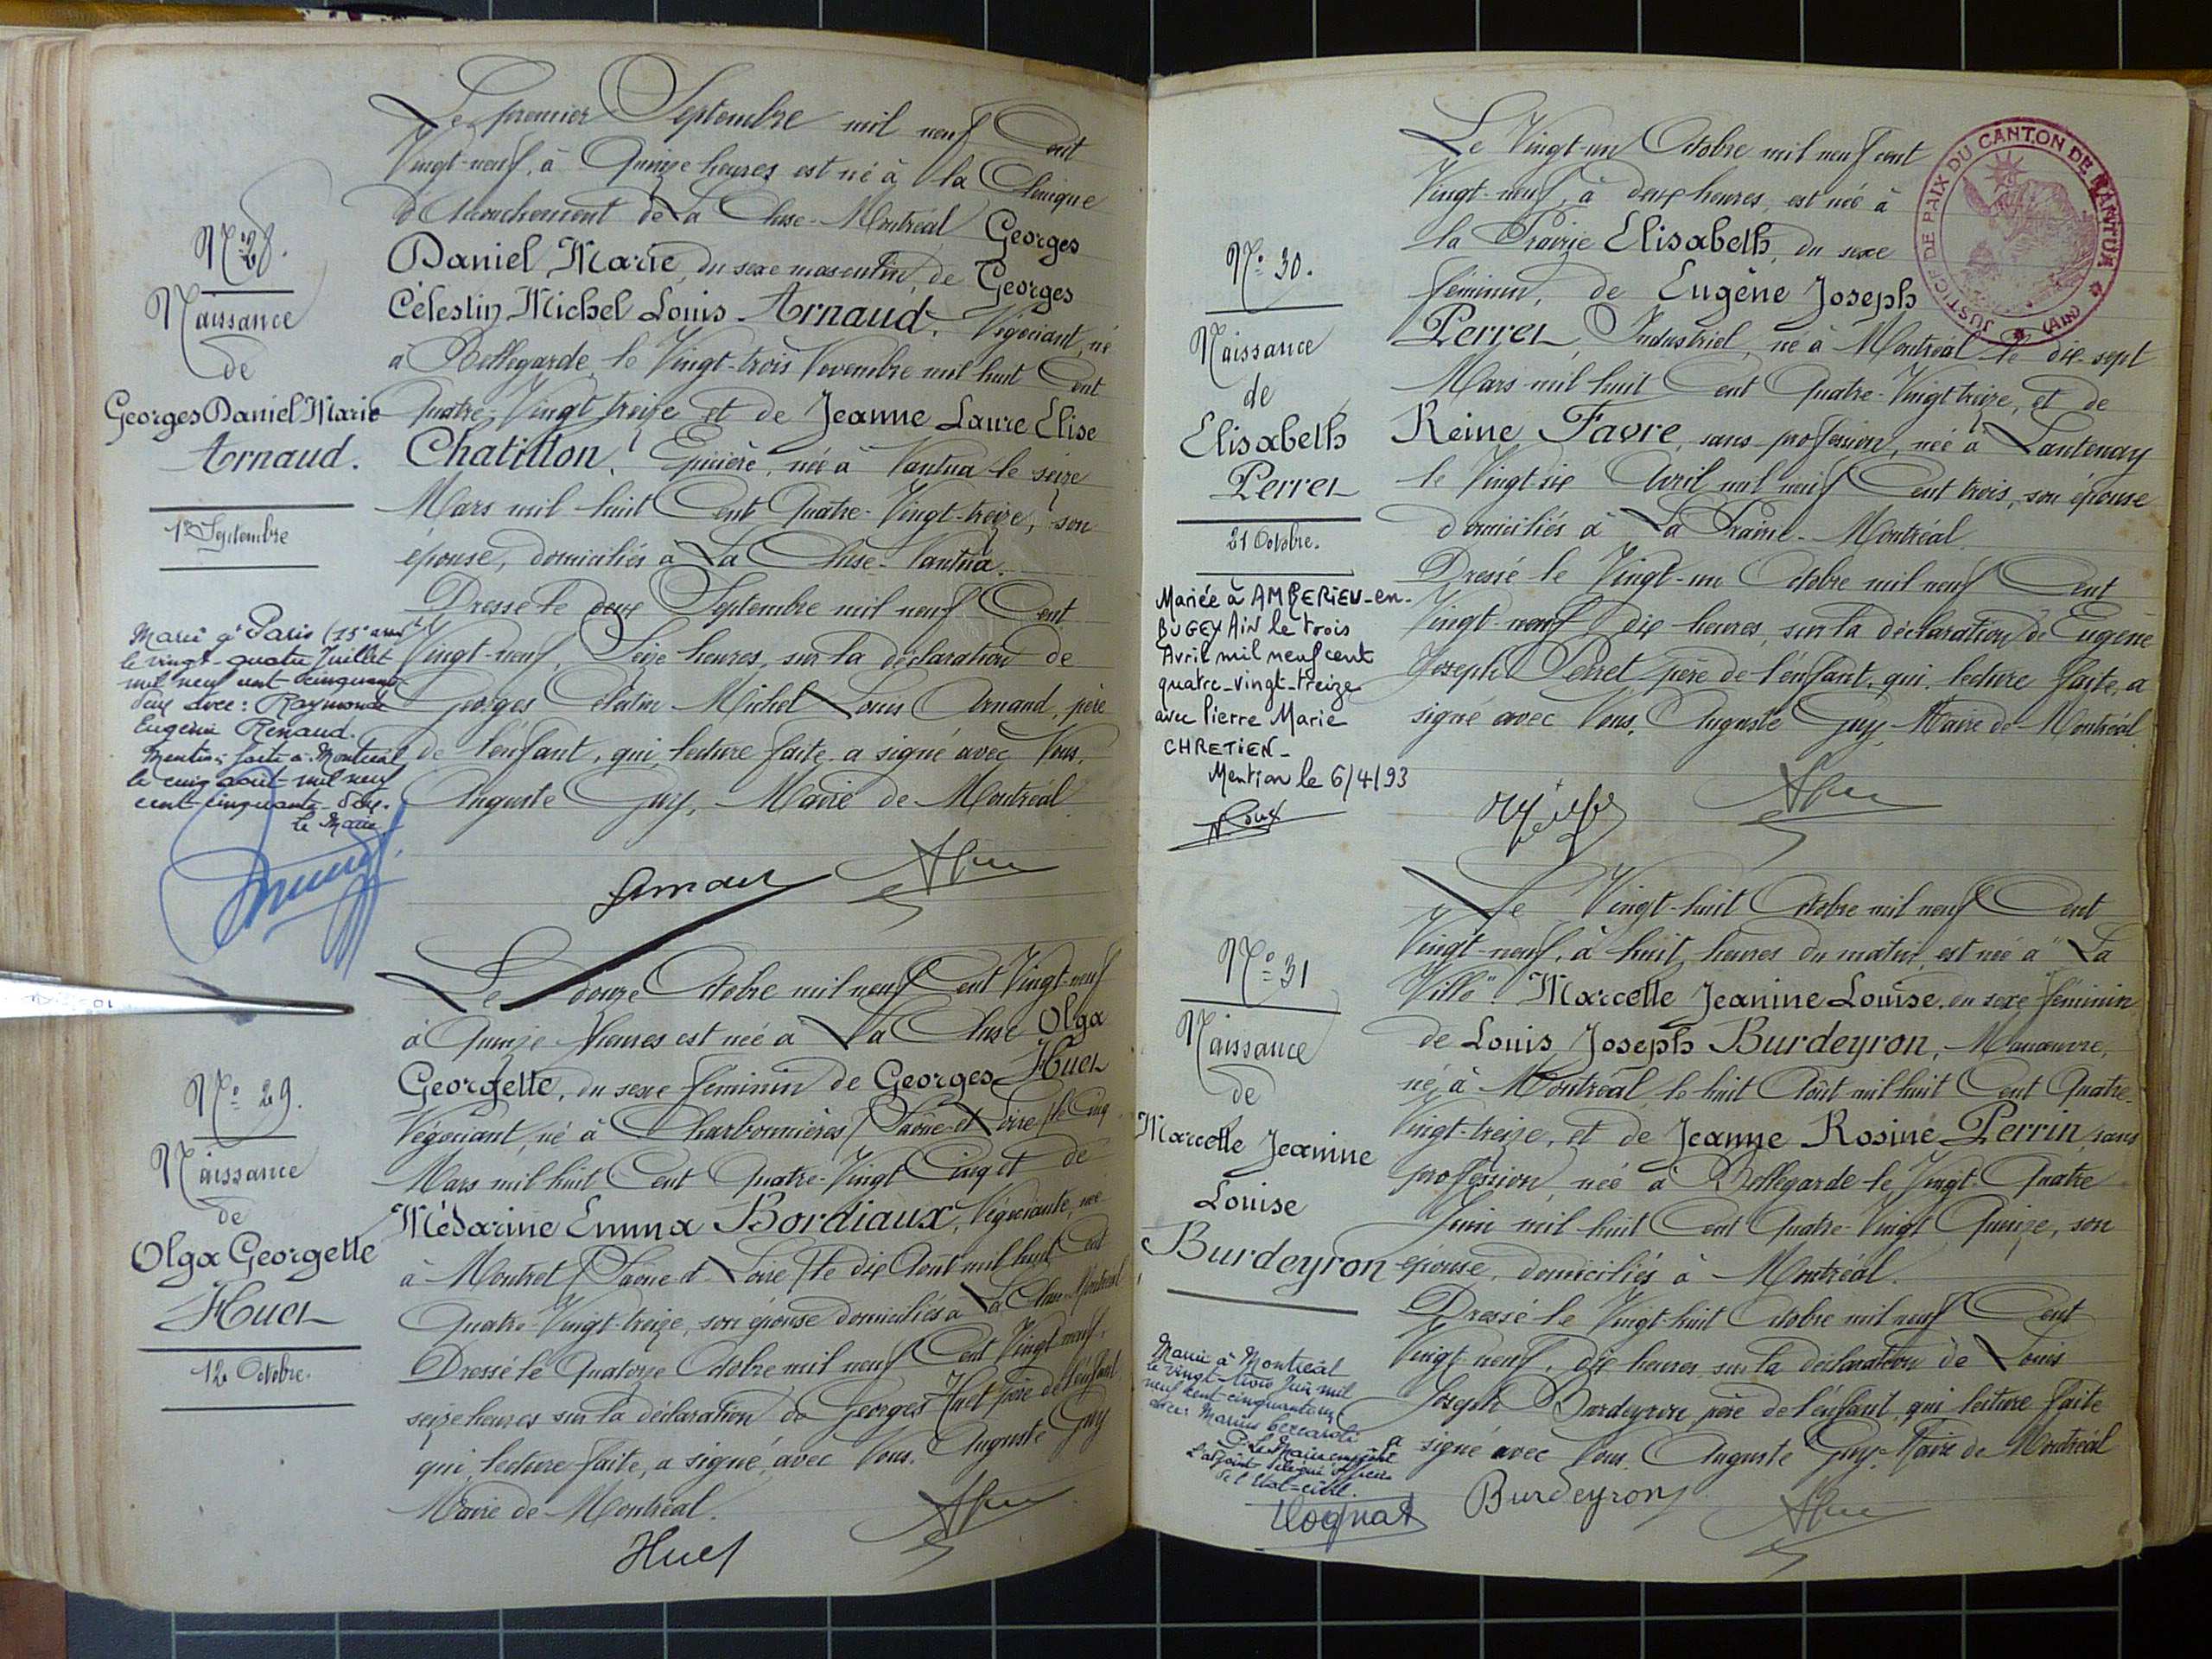 N° 28.
Naissance
de
Georges Daniel Marie
Arnaud.
1er Septembre
Marié à Paris (15e arrt)
le vingt-quatre Juillet
mil neuf cent cinquante
deux avec: Raymonde
Eugénie Renaud.
Mention faite à Montréal
le cinq août mil neuf
cent cinquante-deux.
Le Maire
Le premier Septembre mil neuf Cent
Vingt-neuf, à Quinze heures est né à la Clinique
d'Accouchement de La Cluse-Montréal Georges
Daniel Marie, du sexe masculin, de Georges
Célestin Michel Louis Arnaud, Négociant, né
à Bellegarde, le Vingt-trois Novembre mil huit Cent
Quatre-Vingt treize et de Jeanne Laure Elise
Chatillon, Epicière, née à Nantua le seize
Mars mil huit Cent Quatre-Vingt-treize, son
épouse, domiciliés à La Cluse-Nantua.
Dressé le deux Septembre mil neuf Cent
Vingt-neuf, Seize heures, sur la déclaration de
Georges Célestin Michel Louis Arnaud, père
de l'enfant, qui, lecture faite, a signé avec Nous,
Auguste Guy, Maire de Montréal.
Arnaud
N° 29.
Naissance
de
Olga Georgette
Huet
12 Octobre.
Le douze Octobre mil neuf Cent Vingt-neuf
à Quinze heures est née à La Cluse Olga
Georgette, du sexe féminin de Georges Huet
Négociant, né à Charbonnières (Saône-et-Loire) le Cinq
Mars mil huit Cent Quatre-Vingt Cinq et de
Médarine Emma Bordiaux, Négociante, née
à Montret (Saône-et-Loire) le dix Août mil huit Cent
Quatre-Vingt-treize, son épouse domiciliés à La Cluse-Montréal
Dressé le Quatorze Octobre mil neuf Cent Vingt neuf,
seize heures sur la déclaration de Georges Huet père de l'enfant
qui, lecture faite, a signé avec Nous, Auguste Guy
Maire de Montréal.
Huet
JUSTICE DE PAIX DU CANTON DE NANTUA
(AIN)
N° 30.
Naissance
de
Elisabeth
Perret
21 Octobre.
Mariée à AMBERIEU-en-
BUGEY AIN le trois
Avril mil neuf cent
quatre-vingt-treize
avec Pierre Marie
CHRETIEN-
Mention le 6/4/93
Roux
Le Vingt-un Octobre mil neuf cent
Vingt-neuf, à deux heures, est née à
la Prairie Elisabeth, du sexe
féminin, de Eugène Joseph
Perret, Industriel, né à Montréal le dix-sept
Mars mil huit Cent Quatre-Vingt treize, et de
Reine Favre, sans profession, née à Lantenay
le Vingt-six Avril mil neuf Cent trois, son épouse
domiciliés à La Prairie-Montréal.
Dressé le Vingt-un Octobre mil neuf Cent
Vingt-neuf, dix heures, sur la déclaration de Eugène
Joseph Perret père de l'enfant, qui, lecture faite, a
signé avec Nous, Auguste Guy, Maire de Montréal.
N° 31
Naissance
de
Marcelle Jeanine
Louise
Burdeyron
Mariée à Montréal
le vingt-trois Juin mil
neuf cent cinquante un
avec: Marius
P. Le Maire empêché
L'adjoint délégué officier
de l'Etat-civil.
Le Vingt-huit Octobre mil neuf Cent
Vingt-neuf, à huit heures du matin, est née à "La
Ville" Marcelle Jeanine Louise, du sexe féminin
de Louis Joseph Burdeyron, Manœuvre,
né à Montréal le huit Août mil huit Cent Quatre-
Vingt-treize, et de Jeanne Rosine Perrin, sans
profession, née à Bellegarde le Vingt-Quatre
Juin mil huit Cent Quatre-Vingt Quinze, son
épouse, domiciliés à Montréal.
Dressé le Vingt-huit Octobre mil neuf Cent
Vingt-neuf, dix heures sur la déclaration de Louis
Joseph Burdeyron père de l'enfant, qui lecture faite
a signé avec Nous, Auguste Guy, Maire de Montréal
Burdeyron